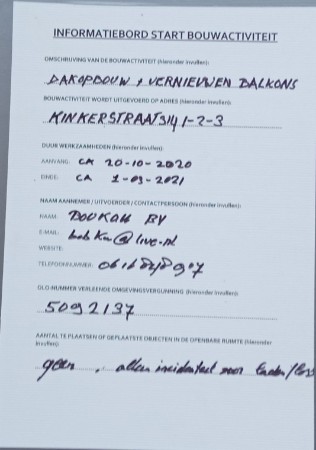 INFORMATIEBORD START BOUWACTIVITEIT
OMSCHRIJVING VAN DE BOUWACTIVITEIT (hieronder invullen):
DAKOPBOUW + VERNIEUWEN BALKONS
BOUWACTIVITEIT WORDT UITGEVOERD OP ADRES (hieronder invullen):
KINKERSTRAAT 314 1-2-3
DUUR WERKZAAMHEDEN (hieronder invullen):
AANVANG: CA 20-10-2020
EINDE: CA 1-03-2021
NAAM AANNEMER / UITVOERDER / CONTACTPERSOON (hieronder invullen):
NAAM: BV
E-MAIL: @live.nl
WEBSITE:
TELEFOONNUMMER:
OLO-NUMMER VERLEENDE OMGEVINGSVERGUNNING (hieronder invullen):
5092137
AANTAL TE PLAATSEN OF GEPLAATSTE OBJECTEN IN DE OPENBARE RUIMTE (hieronder
invullen):
geen, alleen incidenteel voor laden/loss